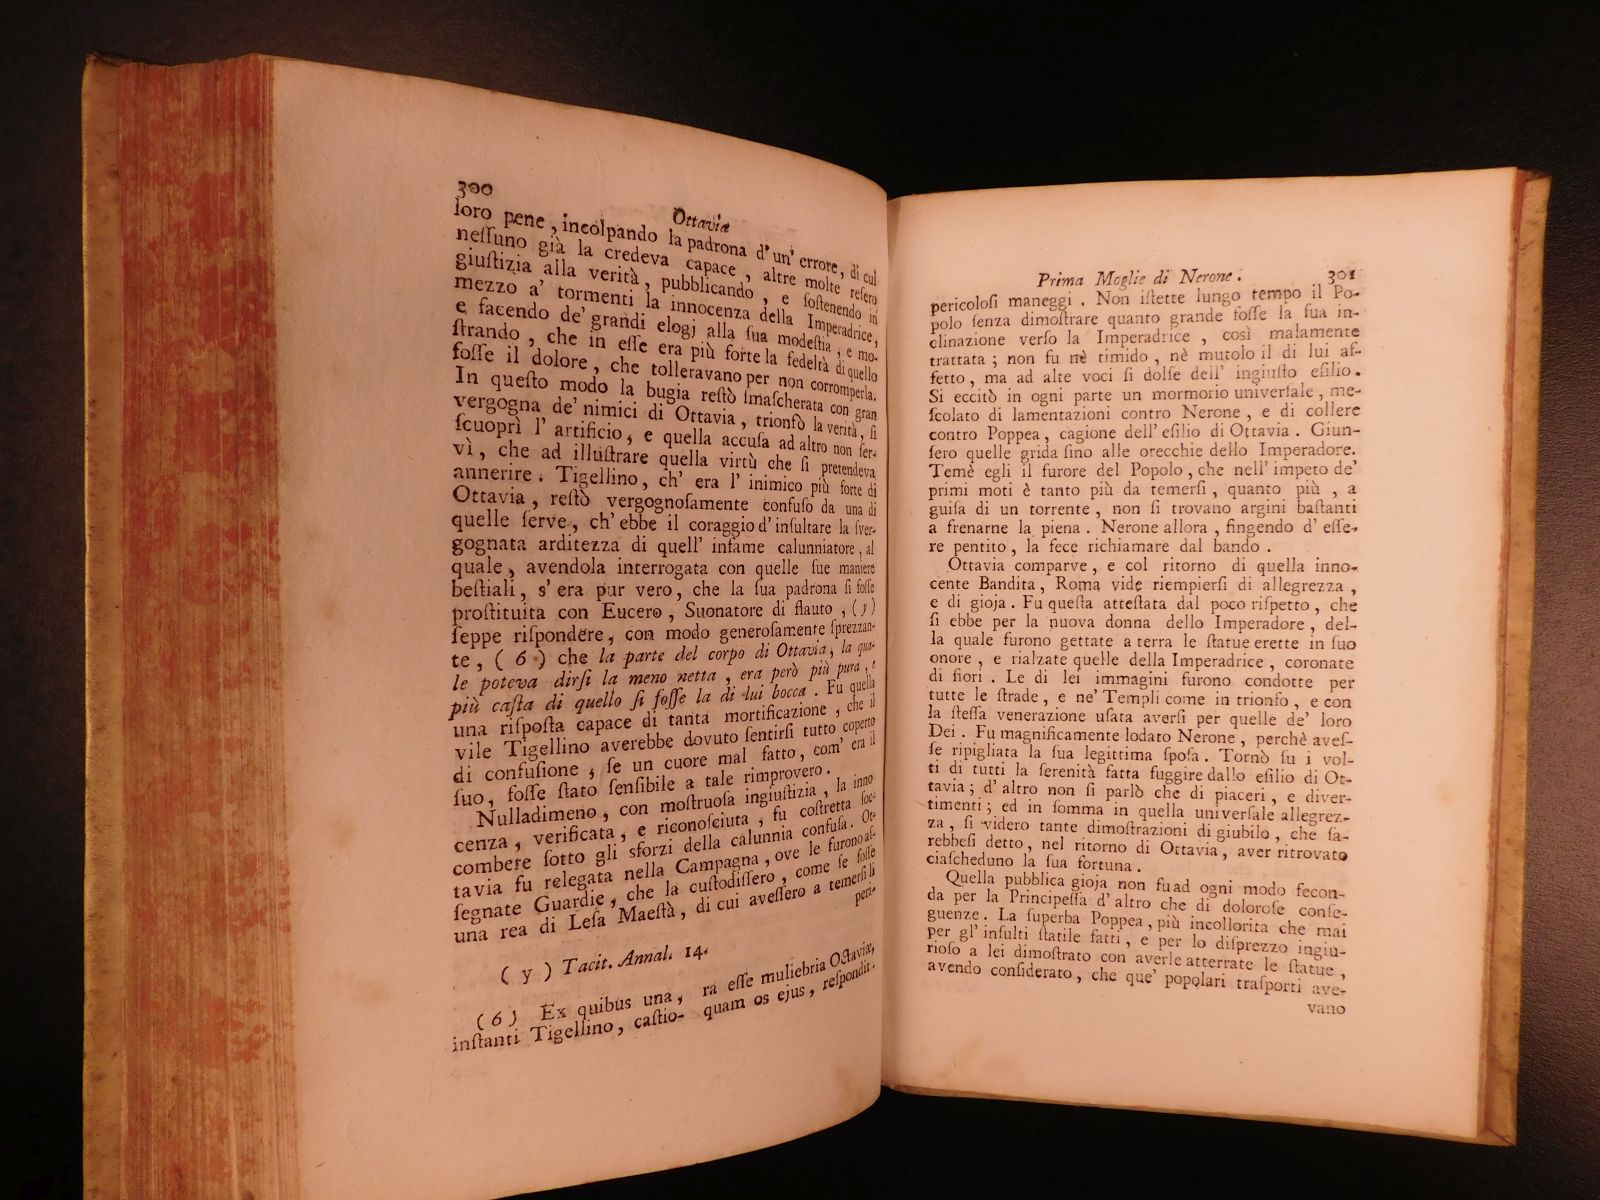 300
Ottavia
loro pene, incolpando la padrona d'un' errore, di cui
neſſuno già la credeva capace, altre molte reſero
giuſtizia alla verità, pubblicando, e ſoſtenendo in
mezzo a' tormenti la innocenza della Imperadrice,
e facendo de' grandi elogj alla ſua modeſtia, e mo-
ſtrando, che in eſſe era più forte la fedeltà di quello
foſſe il dolore, che tolleravano per non corromperla.
In queſto modo la bugia reſtò ſmaſcherata con gran
vergogna de' nimici di Ottavia, trionfò la verità, ſi
ſcuoprì l' artificio, e quella accuſa ad altro non ſer-
vì, che ad illuſtrare quella virtù che ſi pretendeva
annerire. Tigellino, ch' era l' inimico più forte di
Ottavia, reſtò vergognoſamente confuſo da una di
quelle ſerve, ch' ebbe il coraggio d' inſultare la ſver-
gognata arditezza di quell' infame calunniatore, al
quale, avendola interrogata con quelle ſue maniere
beſtiali, s' era pur vero, che la ſua padrona ſi foſſe
proſtituita con Eucero, Suonatore di flauto, (y)
ſeppe riſpondere, con modo generoſamente ſprezzan-
te, (6) che la parte del corpo di Ottavia, la qua-
le poteva dirſi la meno netta, era però più pura, e
più caſta di quello ſi foſſe la di lui bocca. Fu quella
una riſpoſta capace di tanta mortificazione, che il
vile Tigellino averebbe dovuto ſentirſi tutto coperto
di confuſione, ſe un cuore mal fatto, com' era il
ſuo, foſſe ſtato ſenſibile a tale rimprovero.
Nulladimeno, con moſtruoſa ingiuſtizia, la inno-
cenza, verificata, e riconoſciuta, fu coſtretta ſoc-
combere ſotto gli sforzi della calunnia confuſa. Ot-
tavia fu relegata nella Campagna, ove le furono aſ-
ſegnate Guardie, che la cuſtodiſſero, come ſe foſſe
una rea di Leſa Maeſtà, di cui aveſſero a temerſi li
peri-
(y) Tacit. Annal. 14.
(6) Ex quibus una, ra eſſe muliebria Octaviæ,
inſtanti Tigellino, caſtio- quam os ejus, reſpondit.
Prima Moglie di Nerone. 301
pericoloſi maneggi. Non iſtette lungo tempo il Po-
polo ſenza dimoſtrare quanto grande foſſe la ſua in-
clinazione verſo la Imperadrice, così malamente
trattata; non fu nè timido, nè mutolo il di lui af-
fetto, ma ad alte voci ſi dolſe dell' ingiuſto eſilio.
Si eccitò in ogni parte un mormorio univerſale, me-
ſcolato di lamentazioni contro Nerone, e di collere
contro Poppea, cagione dell' eſilio di Ottavia. Giun-
ſero quelle grida ſino alle orecchie dello Imperadore.
Temè egli il furore del Popolo, che nell' impeto de'
primi moti è tanto più da temerſi, quanto più, a
guiſa di un torrente, non ſi trovano argini baſtanti
a frenarne la piena. Nerone allora, fingendo d' eſſe-
re pentito, la fece richiamare dal bando.
Ottavia comparve, e col ritorno di quella inno-
cente Bandita, Roma vide riempierſi di allegrezza,
e di gioja. Fu queſta atteſtata dal poco riſpetto, che
ſi ebbe per la nuova donna dello Imperadore, del-
la quale furono gettate a terra le ſtatue erette in ſuo
onore, e rialzate quelle della Imperadrice, coronate
di fiori. Le di lei immagini furono condotte per
tutte le ſtrade, e ne' Templi come in trionfo, e con
la ſteſſa venerazione uſata averſi per quelle de' loro
Dei. Fu magnificamente lodato Nerone, perchè aveſ-
ſe ripigliata la ſua legittima ſpoſa. Tornò ſu i vol-
ti di tutti la ſerenità fatta fuggire dallo eſilio di Ot-
tavia; d' altro non ſi parlò che di piaceri, e diver-
timenti; ed in ſomma in quella univerſale allegrez-
za, ſi videro tante dimoſtrazioni di giubilo, che ſa-
rebbeſi detto, nel ritorno di Ottavia, aver ritrovato
ciaſcheduno la ſua fortuna.
Quella pubblica gioja non fu ad ogni modo fecon-
da per la Principeſſa d' altro che di doloroſe conſe-
guenze. La ſuperba Poppea, più incollorita che mai
per gl' inſulti ſtatile fatti, e per lo diſprezzo ingiu-
rioſo a lei dimoſtrato con averle atterrate le ſtatue,
avendo conſiderato, che que' popolari traſporti ave-
vano